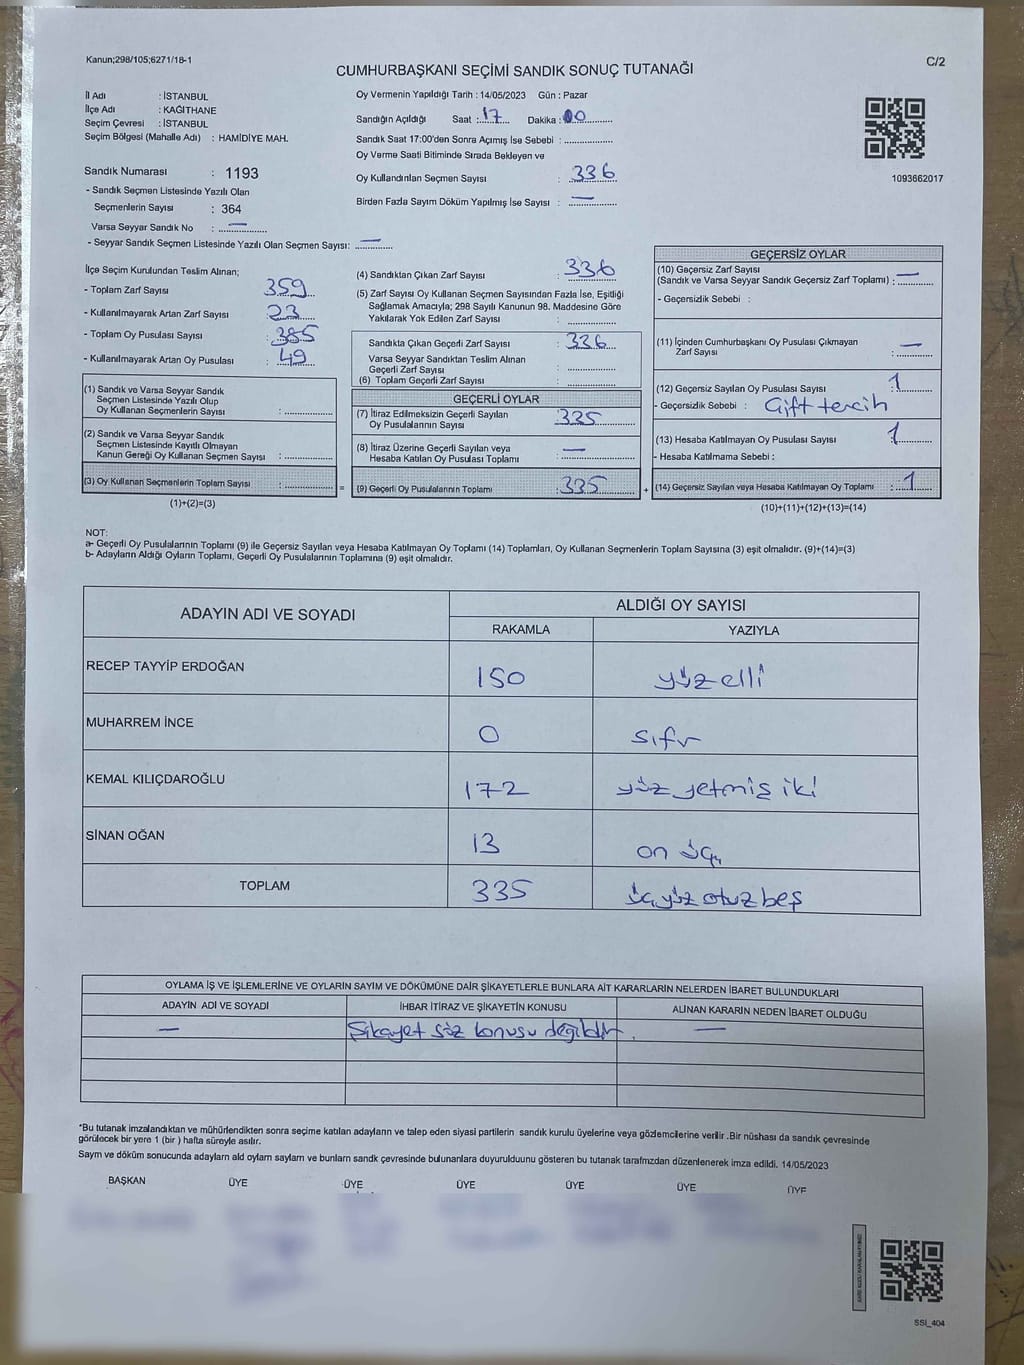 Kanun;298/105;6271/18-1
C/2
CUMHURBAŞKANI SEÇİMİ SANDIK SONUÇ TUTANAĞI
İl Adı : İSTANBUL
İlçe Adı : KAĞITHANE
Seçim Çevresi : İSTANBUL
Seçim Bölgesi (Mahalle Adı) : HAMİDİYE MAH.
Sandık Numarası : 1193
- Sandık Seçmen Listesinde Yazılı Olan
Seçmenlerin Sayısı : 364
Varsa Seyyar Sandık No : —
- Seyyar Sandık Seçmen Listesinde Yazılı Olan Seçmen Sayısı: —
Oy Vermenin Yapıldığı Tarih : 14/05/2023 Gün : Pazar
Sandığın Açıldığı Saat : 17 Dakika : 00
Sandık Saat 17:00'den Sonra Açımış İse Sebebi :
Oy Verme Saati Bitiminde Sırada Bekleyen ve
Oy Kullandırılan Seçmen Sayısı : 336
Birden Fazla Sayım Döküm Yapılmış İse Sayısı : —
1093662017
İlçe Seçim Kurulundan Teslim Alınan;
- Toplam Zarf Sayısı : 359
- Kullanılmayarak Artan Zarf Sayısı : 23
- Toplam Oy Pusulası Sayısı : 385
- Kullanılmayarak Artan Oy Pusulası : 49
(1) Sandık ve Varsa Seyyar Sandık
Seçmen Listesinde Yazılı Olup
Oy Kullanan Seçmenlerin Sayısı :
(2) Sandık ve Varsa Seyyar Sandık
Seçmen Listesinde Kayıtlı Olmayan
Kanun Gereği Oy Kullanan Seçmen Sayısı :
(3) Oy Kullanan Seçmenlerin Toplam Sayısı :
(1)+(2)=(3)
(4) Sandıktan Çıkan Zarf Sayısı : 336
(5) Zarf Sayısı Oy Kullanan Seçmen Sayısından Fazla İse, Eşitliği
Sağlamak Amacıyla; 298 Sayılı Kanunun 98. Maddesine Göre
Yakılarak Yok Edilen Zarf Sayısı :
Sandıkta Çıkan Geçerli Zarf Sayısı : 336
Varsa Seyyar Sandıktan Teslim Alınan
Geçerli Zarf Sayısı :
(6) Toplam Geçerli Zarf Sayısı :
GEÇERLİ OYLAR
(7) İtiraz Edilmeksizin Geçerli Sayılan
Oy Pusulalarının Sayısı : 335
(8) İtiraz Üzerine Geçerli Sayılan veya
Hesaba Katılan Oy Pusulası Toplamı : —
= (9) Geçerli Oy Pusulalarının Toplamı : 335 +
GEÇERSİZ OYLAR
(10) Geçersiz Zarf Sayısı
(Sandık ve Varsa Seyyar Sandık Geçersiz Zarf Toplamı) : —
- Geçersizlik Sebebi :
(11) İçinden Cumhurbaşkanı Oy Pusulası Çıkmayan
Zarf Sayısı : —
(12) Geçersiz Sayılan Oy Pusulası Sayısı : 1
- Geçersizlik Sebebi : Çift tercih
(13) Hesaba Katılmayan Oy Pusulası Sayısı : 1
- Hesaba Katılmama Sebebi :
(14) Geçersiz Sayılan veya Hesaba Katılmayan Oy Toplamı : 1
(10)+(11)+(12)+(13)=(14)
NOT:
a- Geçerli Oy Pusulalarının Toplamı (9) ile Geçersiz Sayılan veya Hesaba Katılmayan Oy Toplamı (14) Toplamları, Oy Kullanan Seçmenlerin Toplam Sayısına (3) eşit olmalıdır. (9)+(14)=(3)
b- Adayların Aldığı Oyların Toplamı, Geçerli Oy Pusulalarının Toplamına (9) eşit olmalıdır.
ADAYIN ADI VE SOYADI
ALDIĞI OY SAYISI
RAKAMLA YAZIYLA
RECEP TAYYİP ERDOĞAN 150 yüz elli
MUHARREM İNCE 0 sıfır
KEMAL KILIÇDAROĞLU 172 yüz yetmiş iki
SİNAN OĞAN 13 on üç
TOPLAM 335 üç yüz otuz beş
OYLAMA İŞ VE İŞLEMLERİNE VE OYLARIN SAYIM VE DÖKÜMÜNE DAİR ŞİKAYETLERLE BUNLARA AİT KARARLARIN NELERDEN İBARET BULUNDUKLARI
ADAYIN ADI VE SOYADI İHBAR İTİRAZ VE ŞİKAYETİN KONUSU ALINAN KARARIN NEDEN İBARET OLDUĞU
— Şikayet söz konusu değildir. —
*Bu tutanak imzalandıktan ve mühürlendikten sonra seçime katılan adayların ve talep eden siyasi partilerin sandık kurulu üyelerine veya gözlemcilerine verilir .Bir nüshası da sandık çevresinde
görülecek bir yere 1 (bir ) hafta süreyle asılır.
Sayım ve döküm sonucunda adayların ald oyların sayların ve bunların sandk çevresinde bulunanlara duyurulduunu gösteren bu tutanak tarafmzdan düzenlenerek imza edildi. 14/05/2023
BAŞKAN ÜYE ÜYE ÜYE ÜYE ÜYE ÜYE
SSİ_404